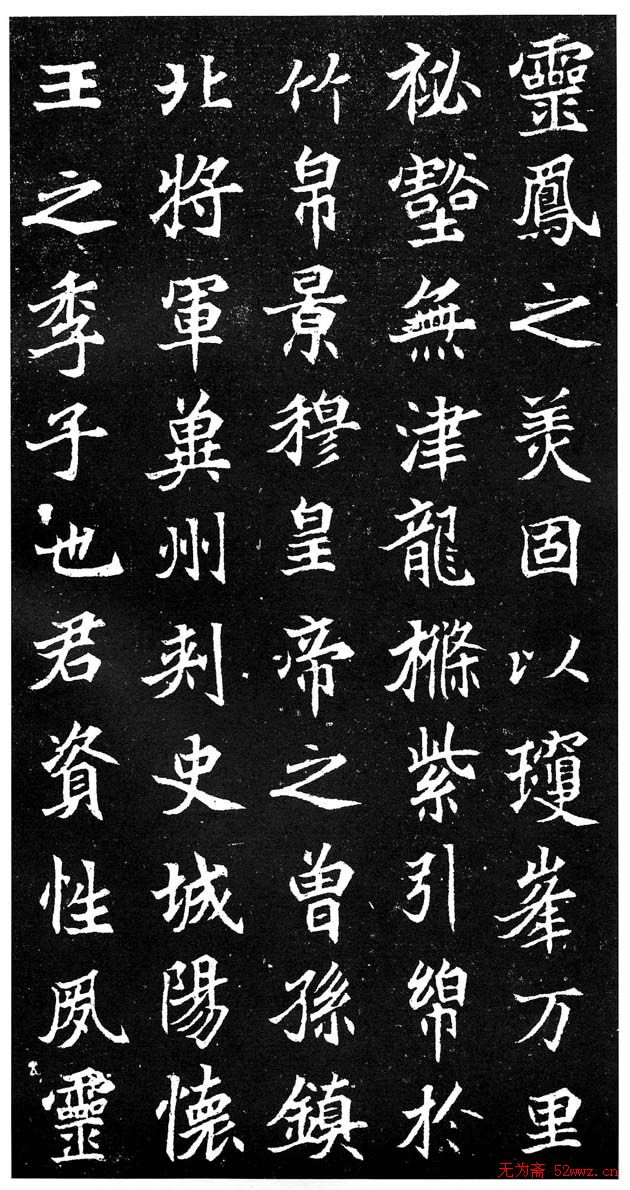 靈鳳之美固以瓊峯万里
祕壑無津龍滌紫引綿於
竹帛景穆皇帝之曾孫鎮
北將軍冀州刺史城陽懷
王之季子也君資性夙靈
无为斋 52wwz.cn